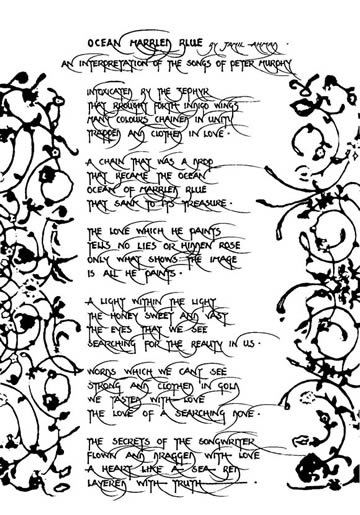 OCEAN MARBLED BLUE BY JAMIL AHMAD.
AN INTERPRETATION OF THE SONGS OF PETER MURPHY
INTOXICATED BY THE ZEPHYR
THAT BROUGHT FORTH INDIGO WINGS
MANY COLOURS CHAINED IN UNITY
TRAPPED AND CLOTHED IN LOVE.
A CHAIN THAT WAS A DROP
THAT BECAME THE OCEAN
OCEAN OF MARBLED BLUE
THAT SANK TO ITS TREASURE.
THE LOVE WHICH HE PAINTS
TELLS NO LIES OR HIDDEN ROSE
ONLY WHAT SHOWS: THE IMAGE
IS ALL HE PAINTS.
A LIGHT WITHIN THE LIGHT
THE HONEY SWEET AND VAST
THE EYES THAT WE SEE
SEARCHING FOR THE REALITY IN US.
WORDS WHICH WE CAN'T SEE
STRONG AND CLOTHED IN GOLD
WE TASTED WITH LOVE
THE LOVE OF A SEARCHING DOVE.
THE SECRETS OF THE SONGWRITER
FLOWN AND DRAGGED WITH LOVE
A HEART LIKE A SEA BED
LAYERED WITH TRUTH